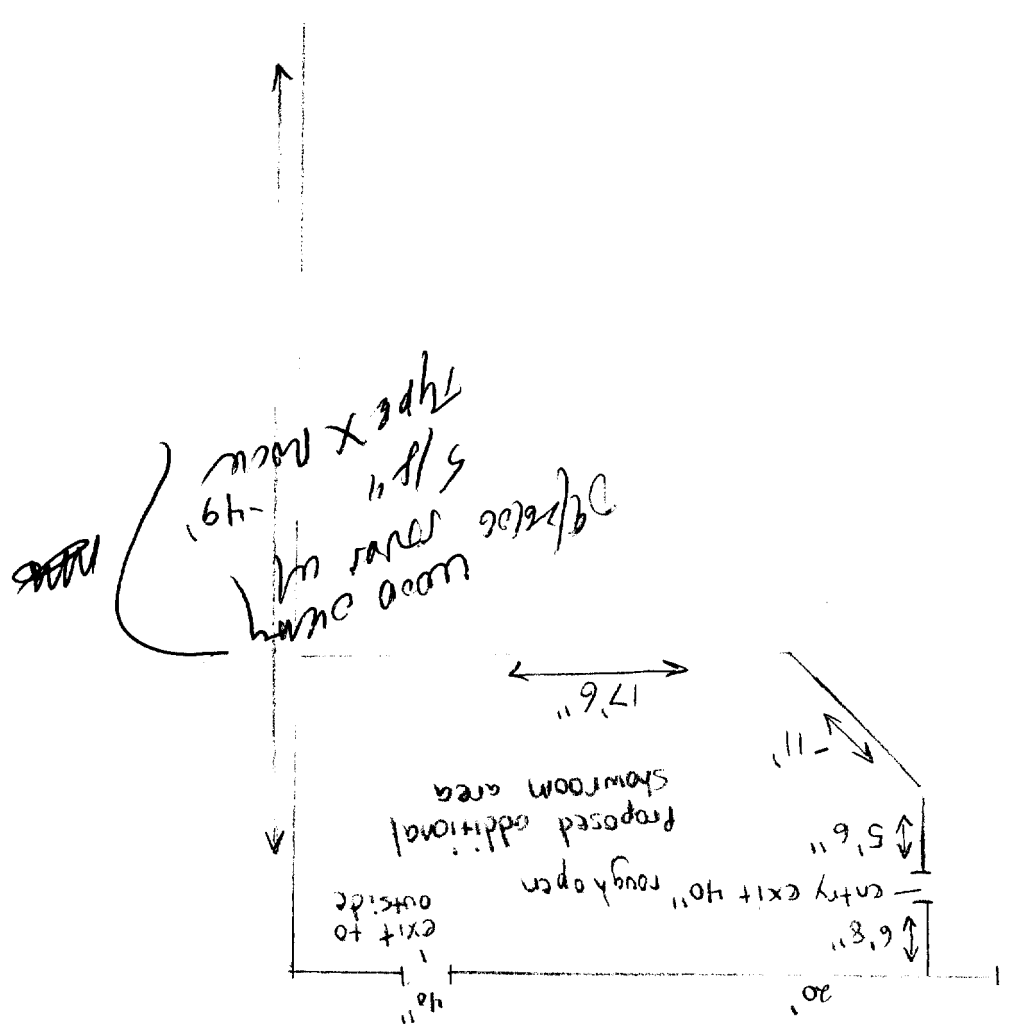 20'
40"
6'8"
exit to
outside
— entry exit 40" rough open
5'6"
Proposed additional
showroom area
~11'
17'6"
wood
cover w/
~49'
5/8"
Type X Rock